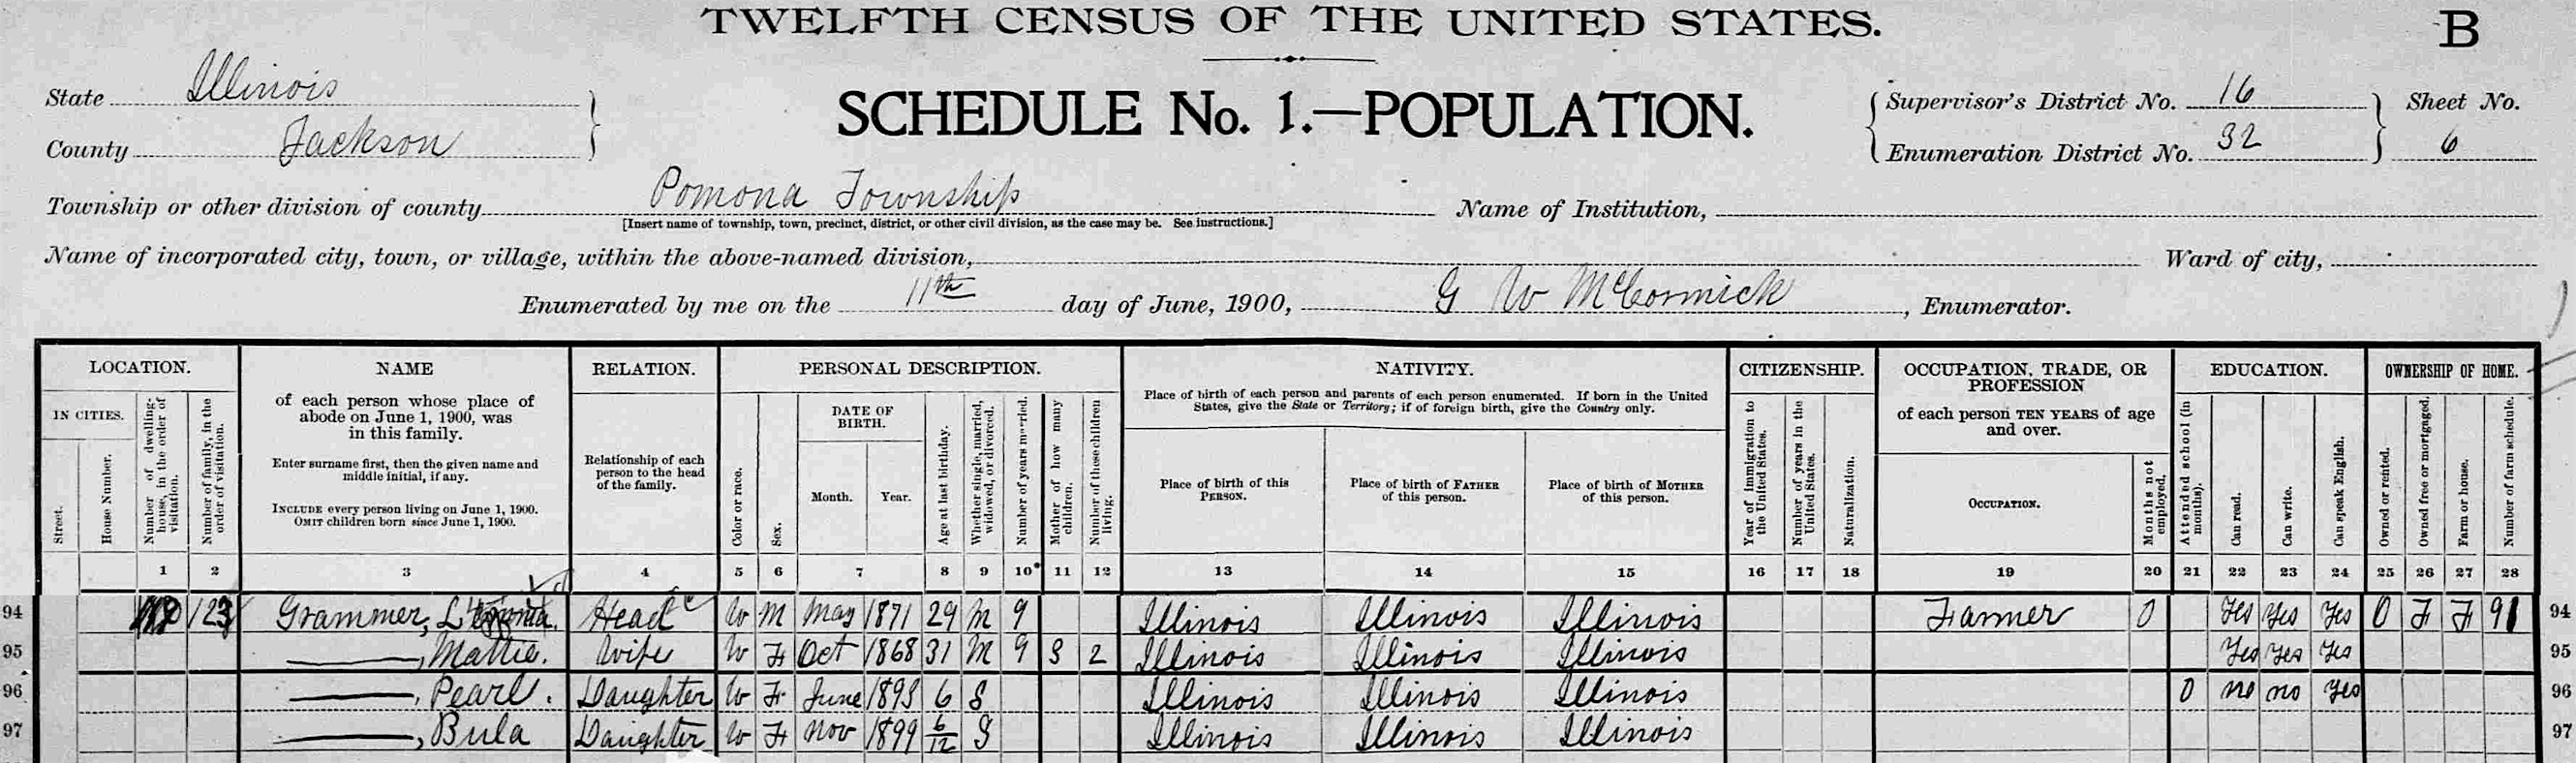 TWELFTH CENSUS OF THE UNITED STATES.
B
State Illinois
County Jackson
SCHEDULE No. 1.—POPULATION.
Supervisor's District No. 16
Enumeration District No. 32
Sheet No.
6
Township or other division of county Pomona Township
[Insert name of township, town, precinct, district, or other civil division, as the case may be. See instructions.]
Name of Institution,
Name of incorporated city, town, or village, within the above-named division,
Ward of city,
Enumerated by me on the 11th day of June, 1900, G W McCormick, Enumerator.
LOCATION.
IN CITIES.
Street.
House Number.
Number of dwelling-house, in the order of visitation.
Number of family, in the order of visitation.
NAME
of each person whose place of
abode on June 1, 1900, was
in this family.
Enter surname first, then the given name and
middle initial, if any.
INCLUDE every person living on June 1, 1900.
OMIT children born since June 1, 1900.
RELATION.
Relationship of each
person to the head
of the family.
PERSONAL DESCRIPTION.
Color or race.
Sex.
DATE OF
BIRTH.
Month.
Year.
Age at last birthday.
Whether single, married, widowed, or divorced.
Number of years married.
Mother of how many children.
Number of these children living.
NATIVITY.
Place of birth of each person and parents of each person enumerated. If born in the United
States, give the State or Territory; if of foreign birth, give the Country only.
Place of birth of this
PERSON.
Place of birth of FATHER
of this person.
Place of birth of MOTHER
of this person.
CITIZENSHIP.
Year of immigration to the United States.
Number of years in the United States.
Naturalization.
OCCUPATION, TRADE, OR
PROFESSION
of each person TEN YEARS of age
and over.
OCCUPATION.
Months not employed.
EDUCATION.
Attended school (in months).
Can read.
Can write.
Can speak English.
OWNERSHIP OF HOME.
Owned or rented.
Owned free or mortgaged.
Farm or house.
Number of farm schedule.
1 2 3 4 5 6 7 8 9 10 11 12 13 14 15 16 17 18 19 20 21 22 23 24 25 26 27 28
94 123 Grammer, Head W M May 1871 29 M 9 Illinois Illinois Illinois Farmer 0 Yes Yes Yes O F F 91 94
95 , Mattie. Wife W F Oct 1868 31 M 9 3 2 Illinois Illinois Illinois Yes Yes Yes 95
96 , Pearl. Daughter W F June 1893 6 S Illinois Illinois Illinois 0 no no yes 96
97 , Bula Daughter W F Nov 1899 6/12 S Illinois Illinois Illinois 97